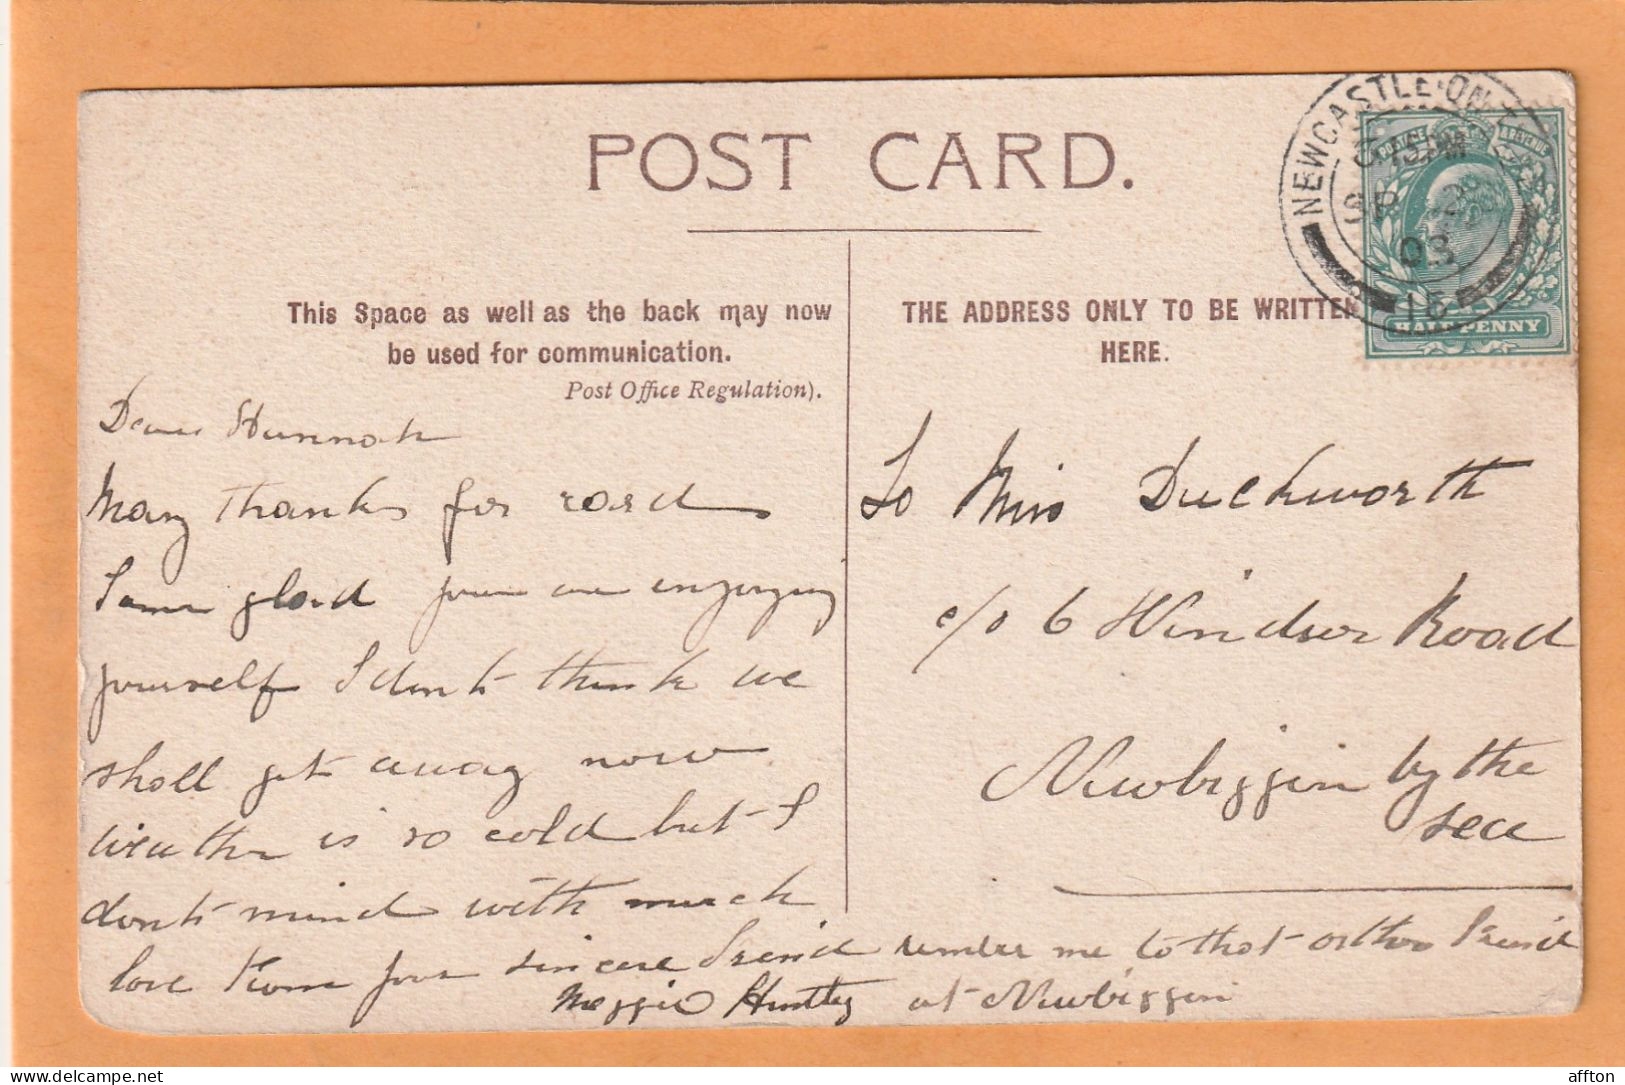 POST CARD.
NEWCASTLE-ON-TYNE
15 PM
SP 28
03
HALFPENNY
This Space as well as the back may now
be used for communication.
Post Office Regulation).
THE ADDRESS ONLY TO BE WRITTEN
HERE.
Dear Hannah
Many thanks for card
I am glad you are enjoying
yourself I dont think we
shall get away now
weather is so cold but I
dont mind with much
love from your sincere Freind
Meggie Huntley
remember me to that other Freind
at Newbiggin
To Miss Duckworth
c/o 6 Windsor Road
Newbiggin by the
sea
affton